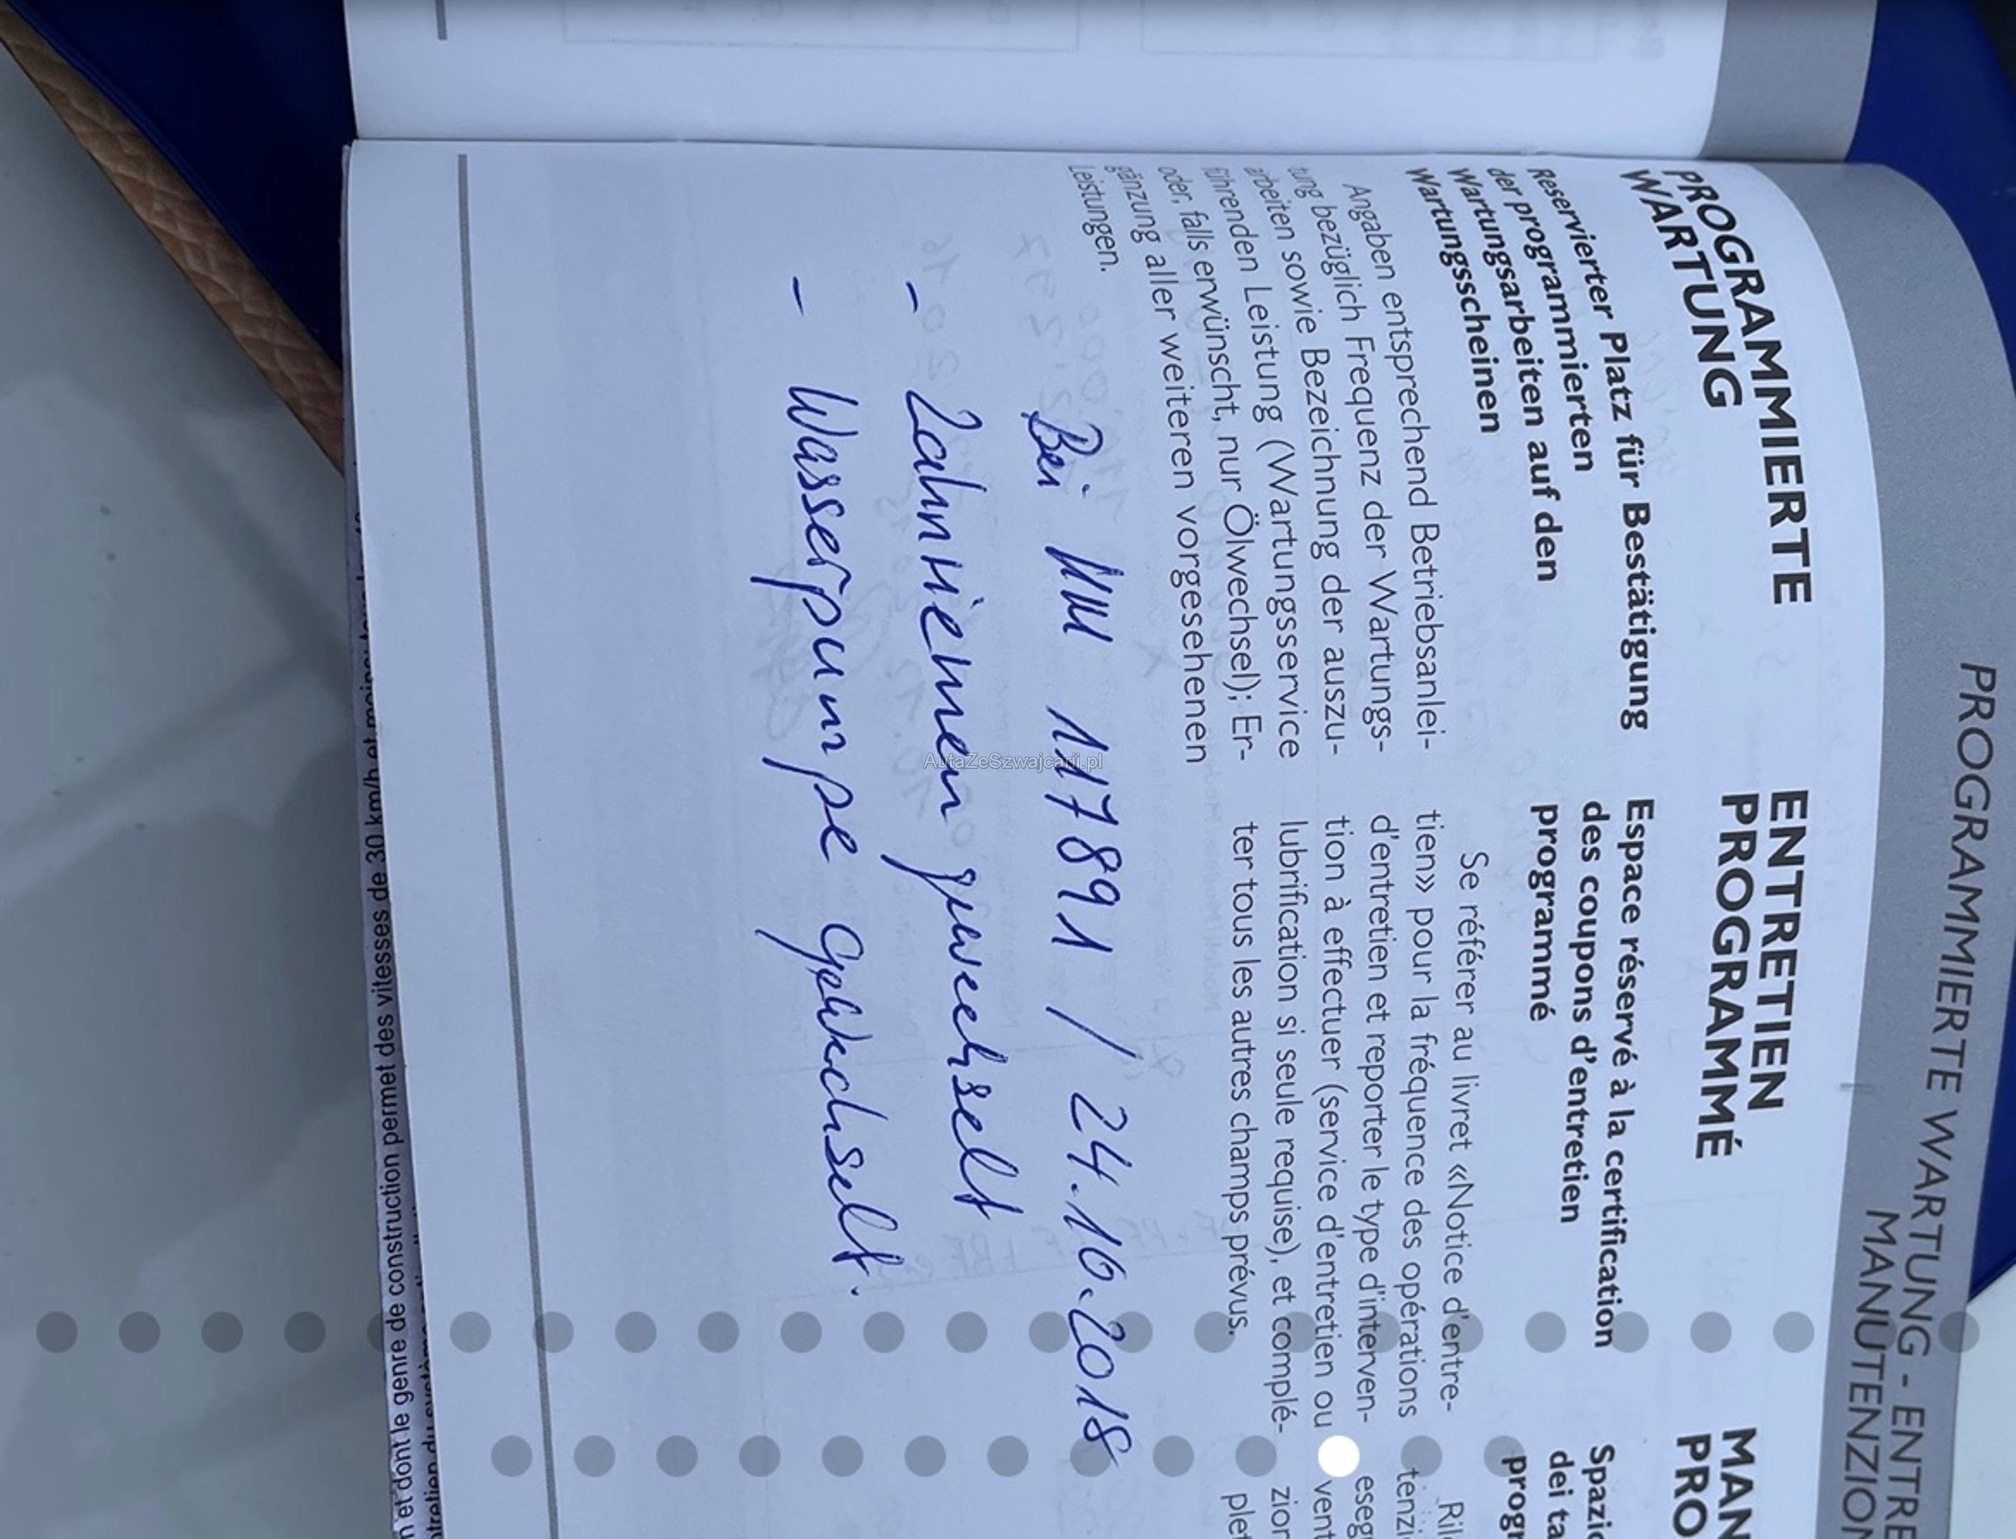 PROGRAMMIERTE WARTUNG - ENTRE
MANUTENZIO
PROGRAMMIERTE
WARTUNG
Reservierter Platz für Bestätigung
der programmierten
Wartungsarbeiten auf den
Wartungsscheinen
Angaben entsprechend Betriebsanlei-
tung bezüglich Frequenz der Wartungs-
arbeiten sowie Bezeichnung der auszu-
führenden Leistung (Wartungsservice
oder, falls erwünscht, nur Ölwechsel); Er-
gänzung aller weiteren vorgesehenen
Leistungen.
ENTRETIEN
PROGRAMMÉ
Espace réservé à la certification
des coupons d'entretien
programmé
Se référer au livret «Notice d'entre-
tien» pour la fréquence des opérations
d'entretien et reporter le type d'interven-
tion à effectuer (service d'entretien ou
lubrification si seule requise), et complé-
ter tous les autres champs prévus.
MAN
PRO
Spazio
dei ta
progr
Rile
tenzi
eseg
vent
zion
plet
Bei KM 117891 / 24.10.2018
- Zahnriemen gewechselt
- Wasserpumpe gewechselt.
AutaZeSzwajcarii.pl
et dont le genre de construction permet des vitesses de 30 km/h et